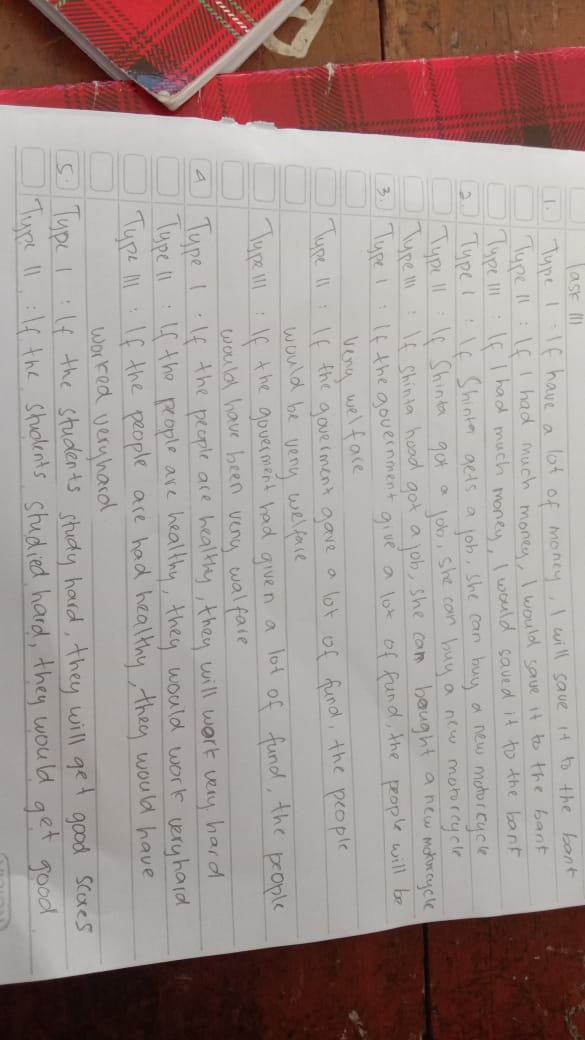 Task III
1. Type I : If have a lot of money, I will save it to the bank
Type II : If I had much money, I would save it to the bank
Type III : If I had much money, I would saved it to the bank
2. Type I : If Shinta gets a job, she can buy a new motorcycle
Type II : If Shinta got a job, she can buy a new motorcycle
Type III : If Shinta hoad got a job, she can bought a new motorcycle
3. Type I : If the government give a lot of fund, the people will be
very welfare
Type II : If the goverment gave a lot of fund, the people
would be very welfare
Type III : If the goverment had given a lot of fund, the people
would have been very walfare
4 Type I : If the people are healthy, they will work very hard
Type II : If the people are healthy, they would work very hard
Type III : If the people are had healthy, they would have
worked very hard
5. Type I : If the students study hard, they will get good scores
Type II : If the students studied hard, they would get good